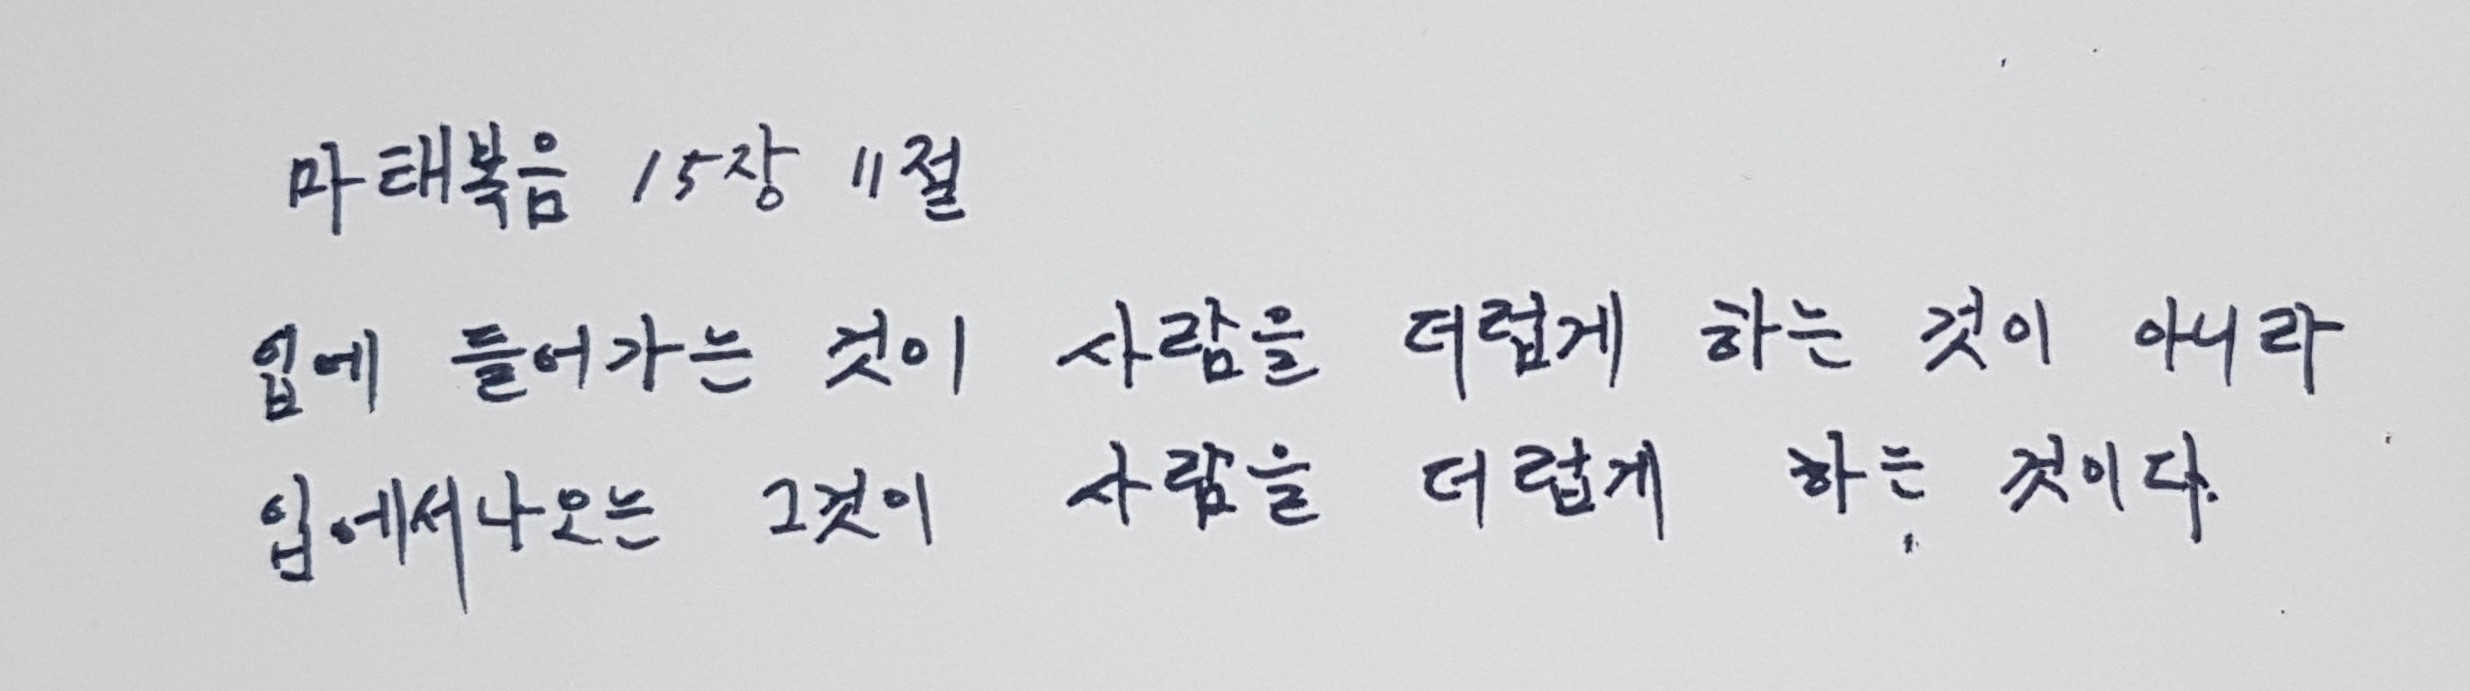 마태복음 15장 11절
입에 들어가는 것이 사람을 더럽게 하는 것이 아니라
입에서나오는 그것이 사람을 더럽게 하는 것이다.